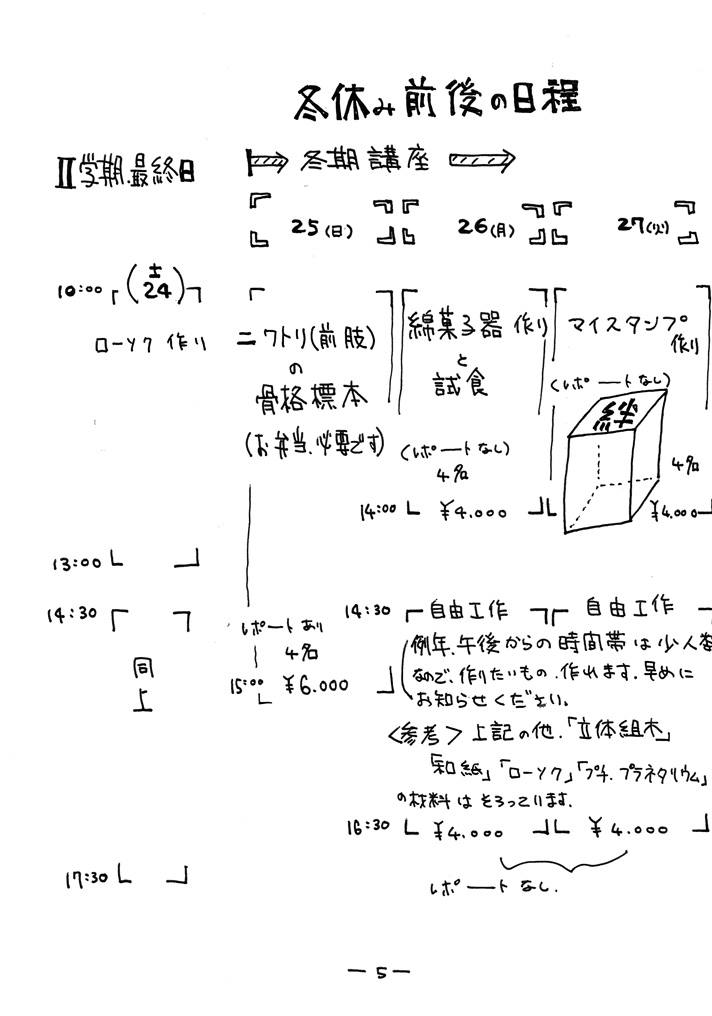 冬休み前後の日程
II学期.最終日
冬期講座
25(日)
26(月)
27(火)
10:00
(土24)
ローソク作り
ニワトリ(前肢)
の
骨格標本
(お弁当、必要です)
綿菓子器作り
と
試食
(レポートなし)
4名
14:00 ¥4.000
マイスタンプ
作り
(レポートなし)
絆
4名
¥4.000
13:00
14:30
同
上
レポートあり
4名
15:00 ¥6.000
14:30 自由工作
自由工作
例年、午後からの時間帯は少人
なので、作りたいもの、作れます。早めに
お知らせください。
<参考>上記の他、「立体組木」
「和紙」「ローソク」「プチ.プラネタリウム」
の材料はそろっています。
16:30 ¥4.000 ¥4.000
レポートなし.
17:30
— 5 —